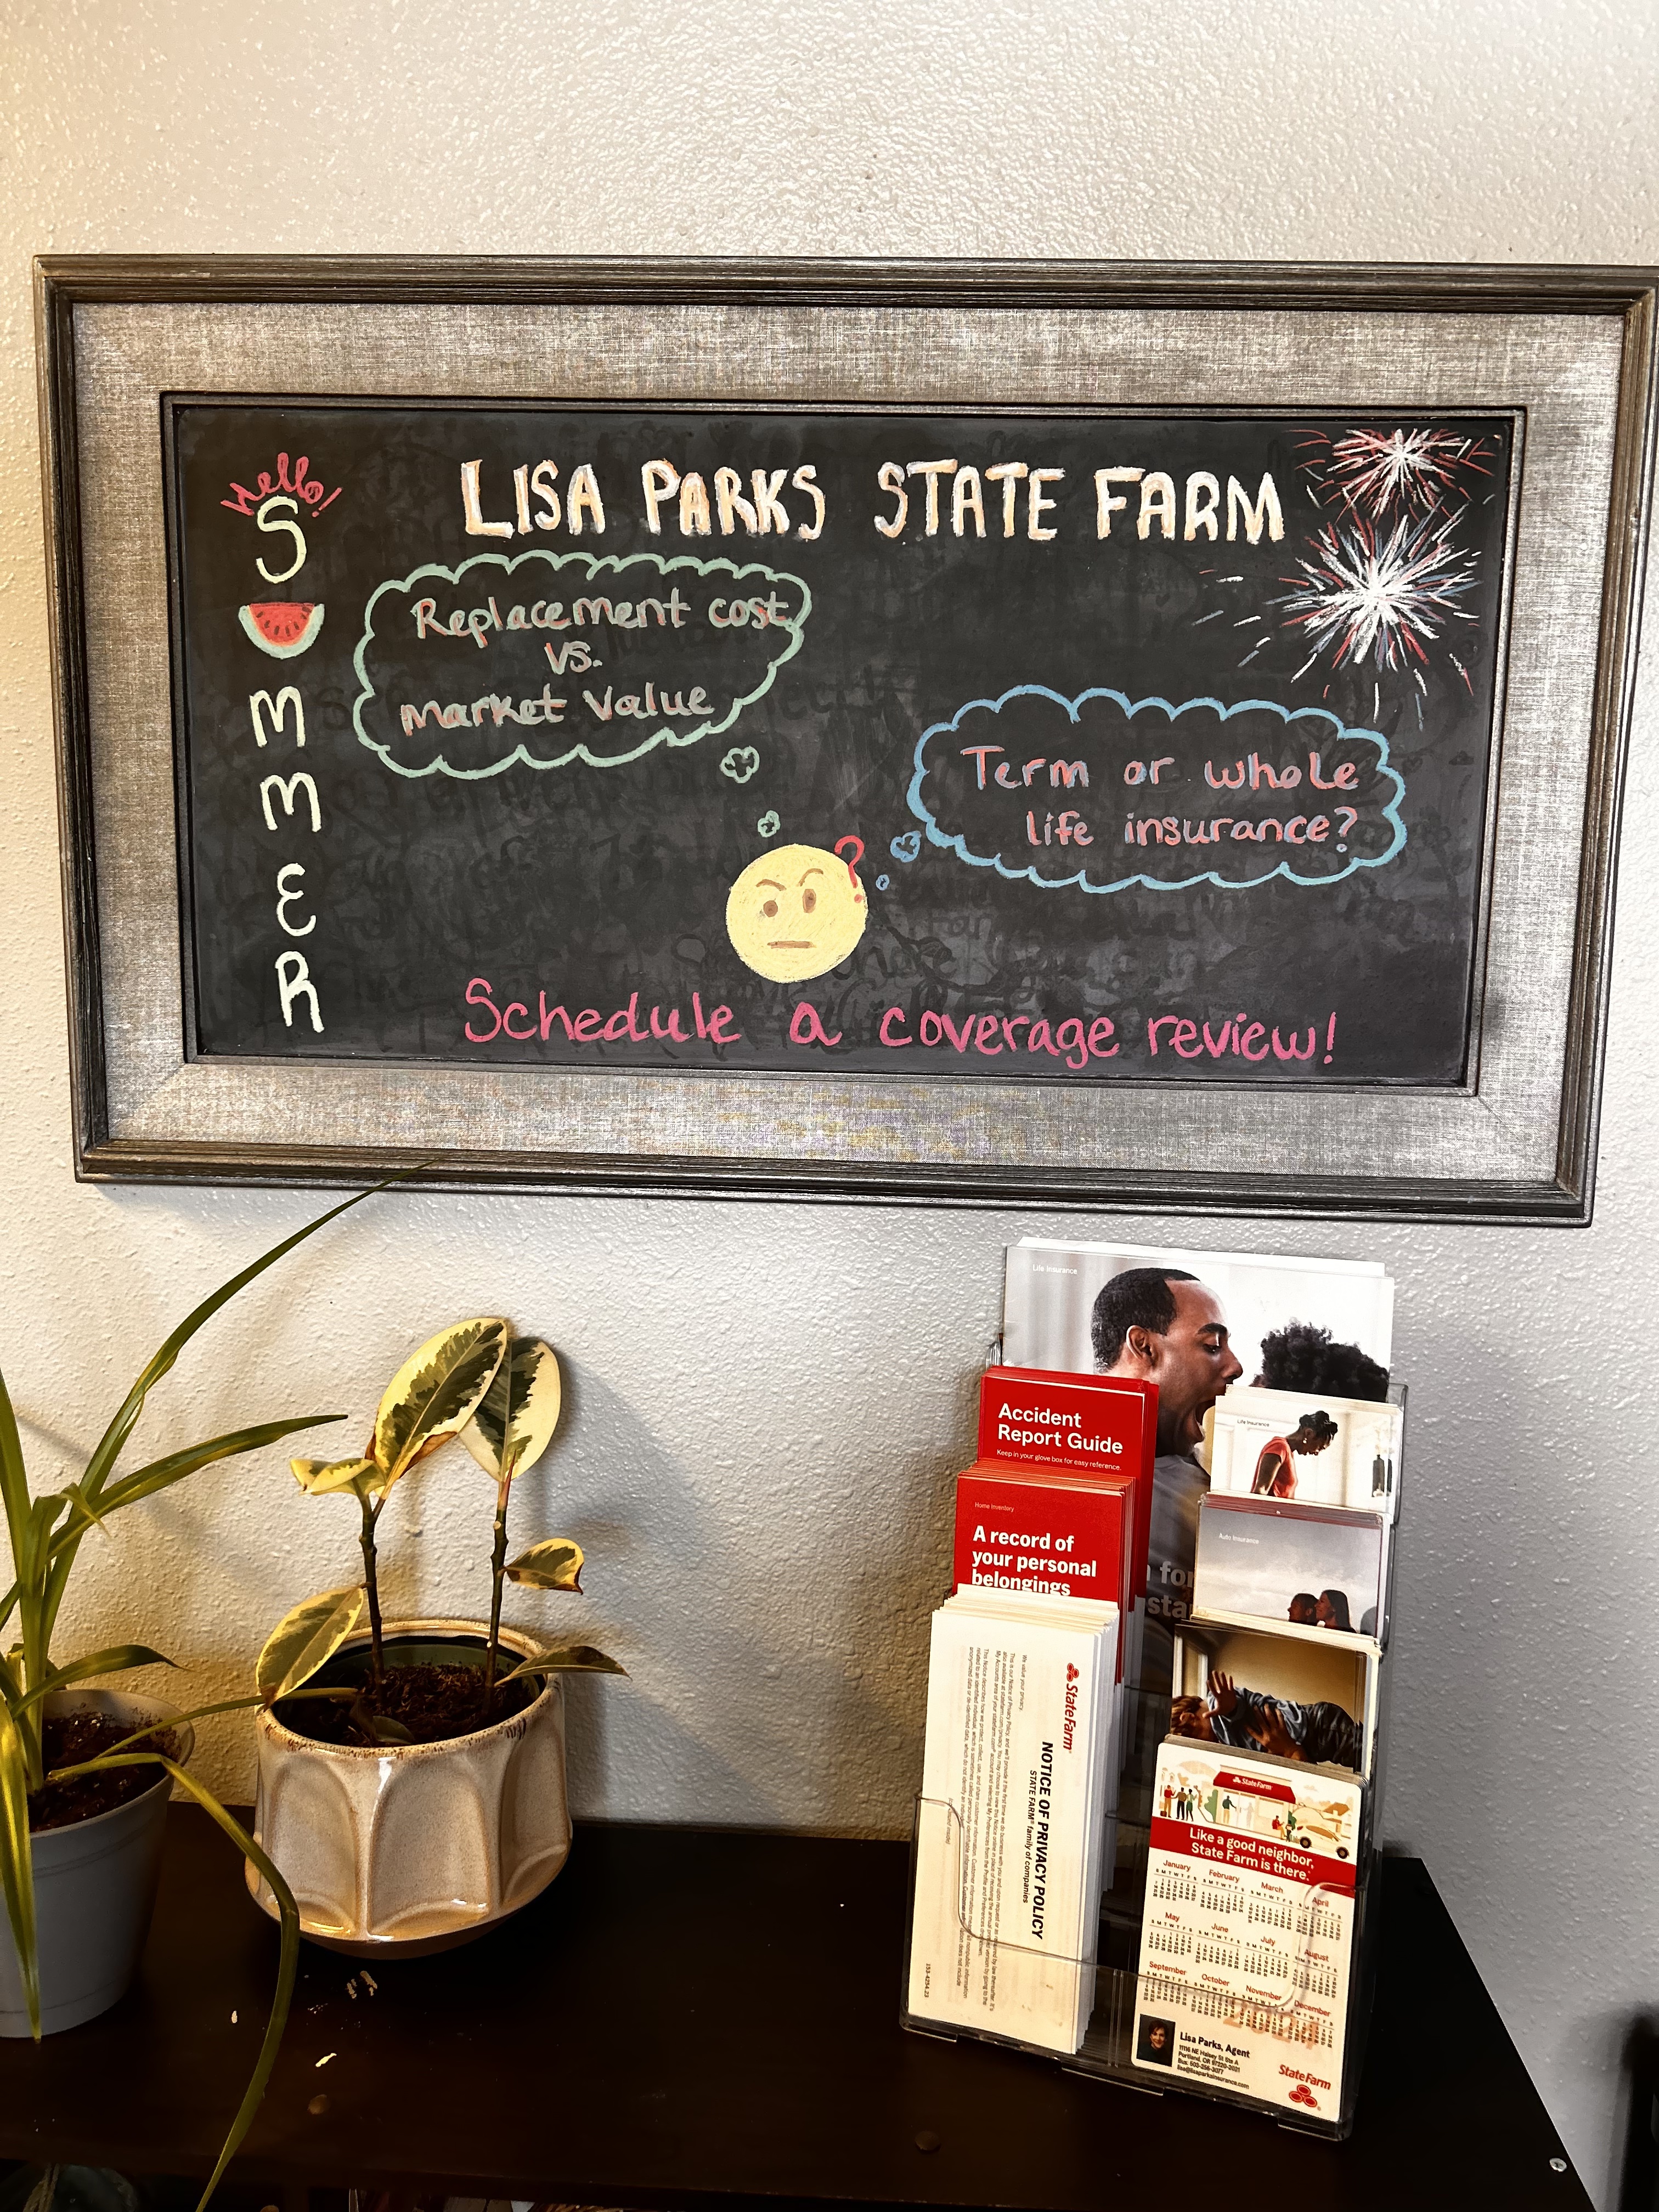 Hello!
S
M
M
E
R
LISA PARKS STATE FARM
Replacement cost
vs.
Market Value
Term or whole
life insurance?
?
Schedule a coverage review!
Life Insurance
Accident
Report Guide
Keep in your glove box for easy reference.
Home Inventory
A record of
your personal
belongings
Life Insurance
Auto Insurance
StateFarm
NOTICE OF PRIVACY POLICY
STATE FARM® family of companies
We value your privacy
StateFarm
Like a good neighbor,
State Farm is there.
January February March April
May June July August
September October November December
2024
Lisa Parks, Agent
11116 NE Halsey St Ste A
Portland, OR 97220-2021
Bus: 503-256-3077
lisa@lisaparksinsurance.com
StateFarm